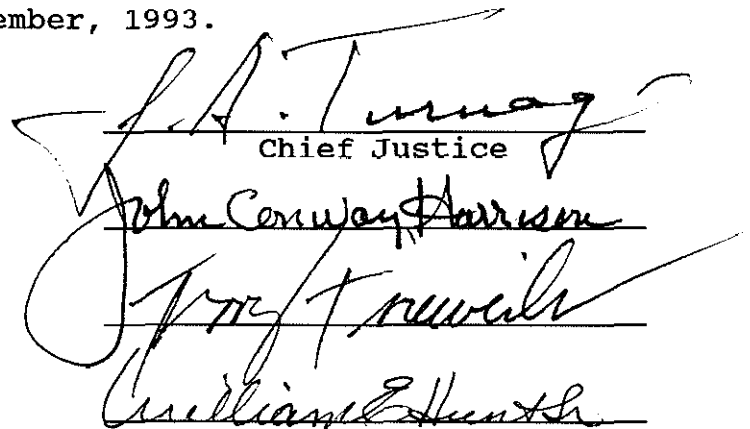 ember, 1993.
J. A. Turnage
Chief Justice
John Conway Harrison
Terry Trieweiler
William E Hunt Sr